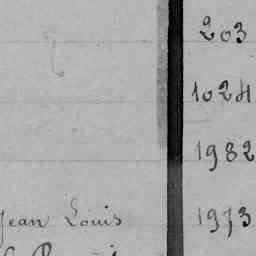 203
1024
1982
Jean Louis 1973